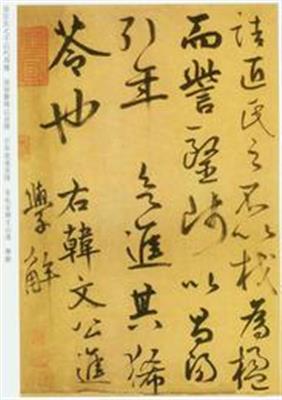 詰匠氏之不以杙為楹
而訾醫師以昌陽
引年欲進其豨
苓也
右韓文公進
學解